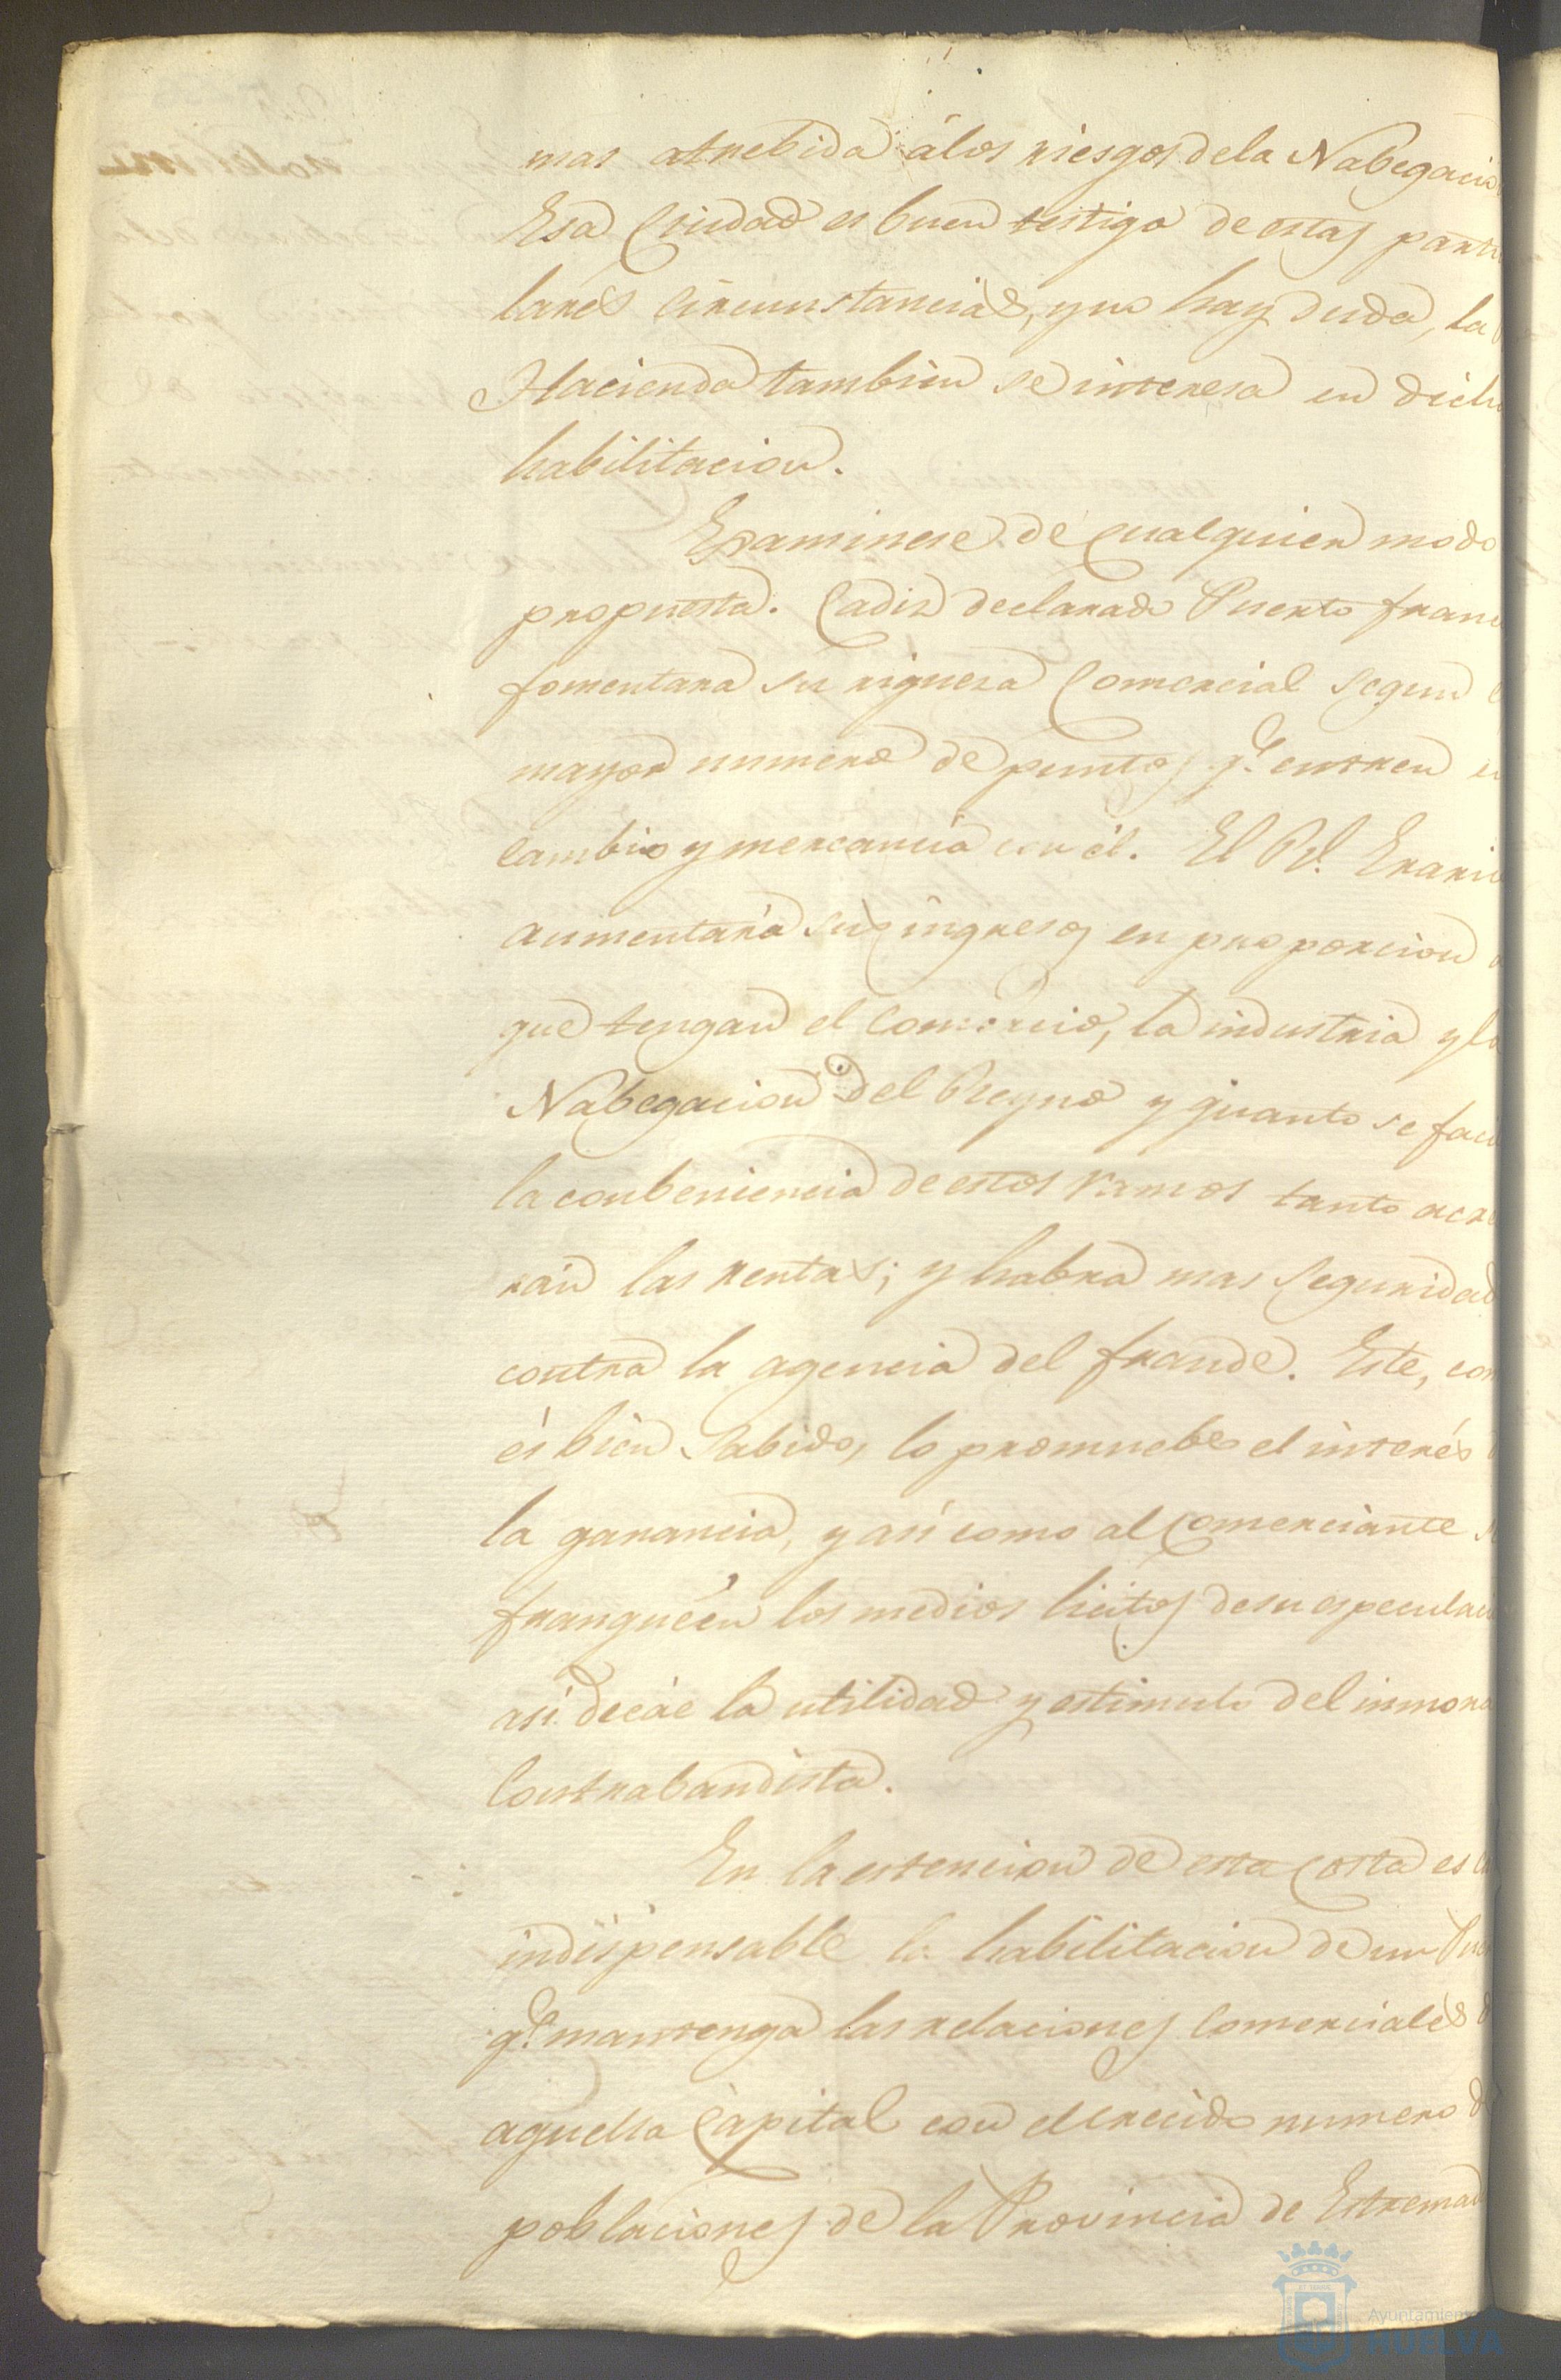 mas atrebida á los riesgos de la Nabegacio
Esa Ciudad es buen testigo de estas parti
lares circunstancias, y no hay duda, la
Hacienda tambien se interesa en dich
habilitacion.
Examinese de qualquier modo
propuesta. Cadiz declarado Puerto fran
fomentara su riqueza Comercial segun
mayor numero de puntos q.e entren en
cambio y mercancia con él. El Rl. Erari
aumentará sus ingresos en proporcion
que tengan el Comercio, la industria y la
Nabegacion del Reyno y quanto se faci
la conbeniencia de estos ramos tanto acre
rán las rentas; y habra mas seguridad
contra la agencia del fraude. Este, com
és bien sabido, lo promuebe el interés
la ganancia, y asi como al Comerciante se
franquéen los medios licitos de su especulaci
asi decáe la utilidad y estimulo del inmora
Contrabandista.
En la estencion de esta Costa es
indispensable la habilitacion de un Pue
q.e mantenga las relaciones Comerciales
aquella Capital con el crecido numero d
poblaciones de la Provincia de Estremad
Ayuntamien
HUELVA